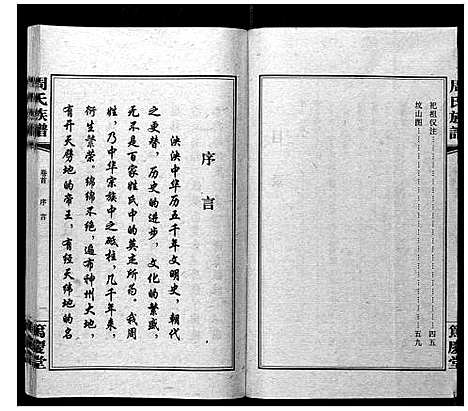 周氏族譜
祀祖仪注……四五
坟山图……五九
篤慶堂
序言
泱泱中华历五千年文明史，朝代
之更替，历史的进步，文化的繁盛，
无不是百家姓氏中的英杰所为。我周
姓，乃中华宗族中之砥柱，几千年来，
衍生繁荣。绵绵不绝，遍布神州大地，
有开天劈地的帝王，有经天纬地的名
周氏族譜
卷首 序言
篤慶堂